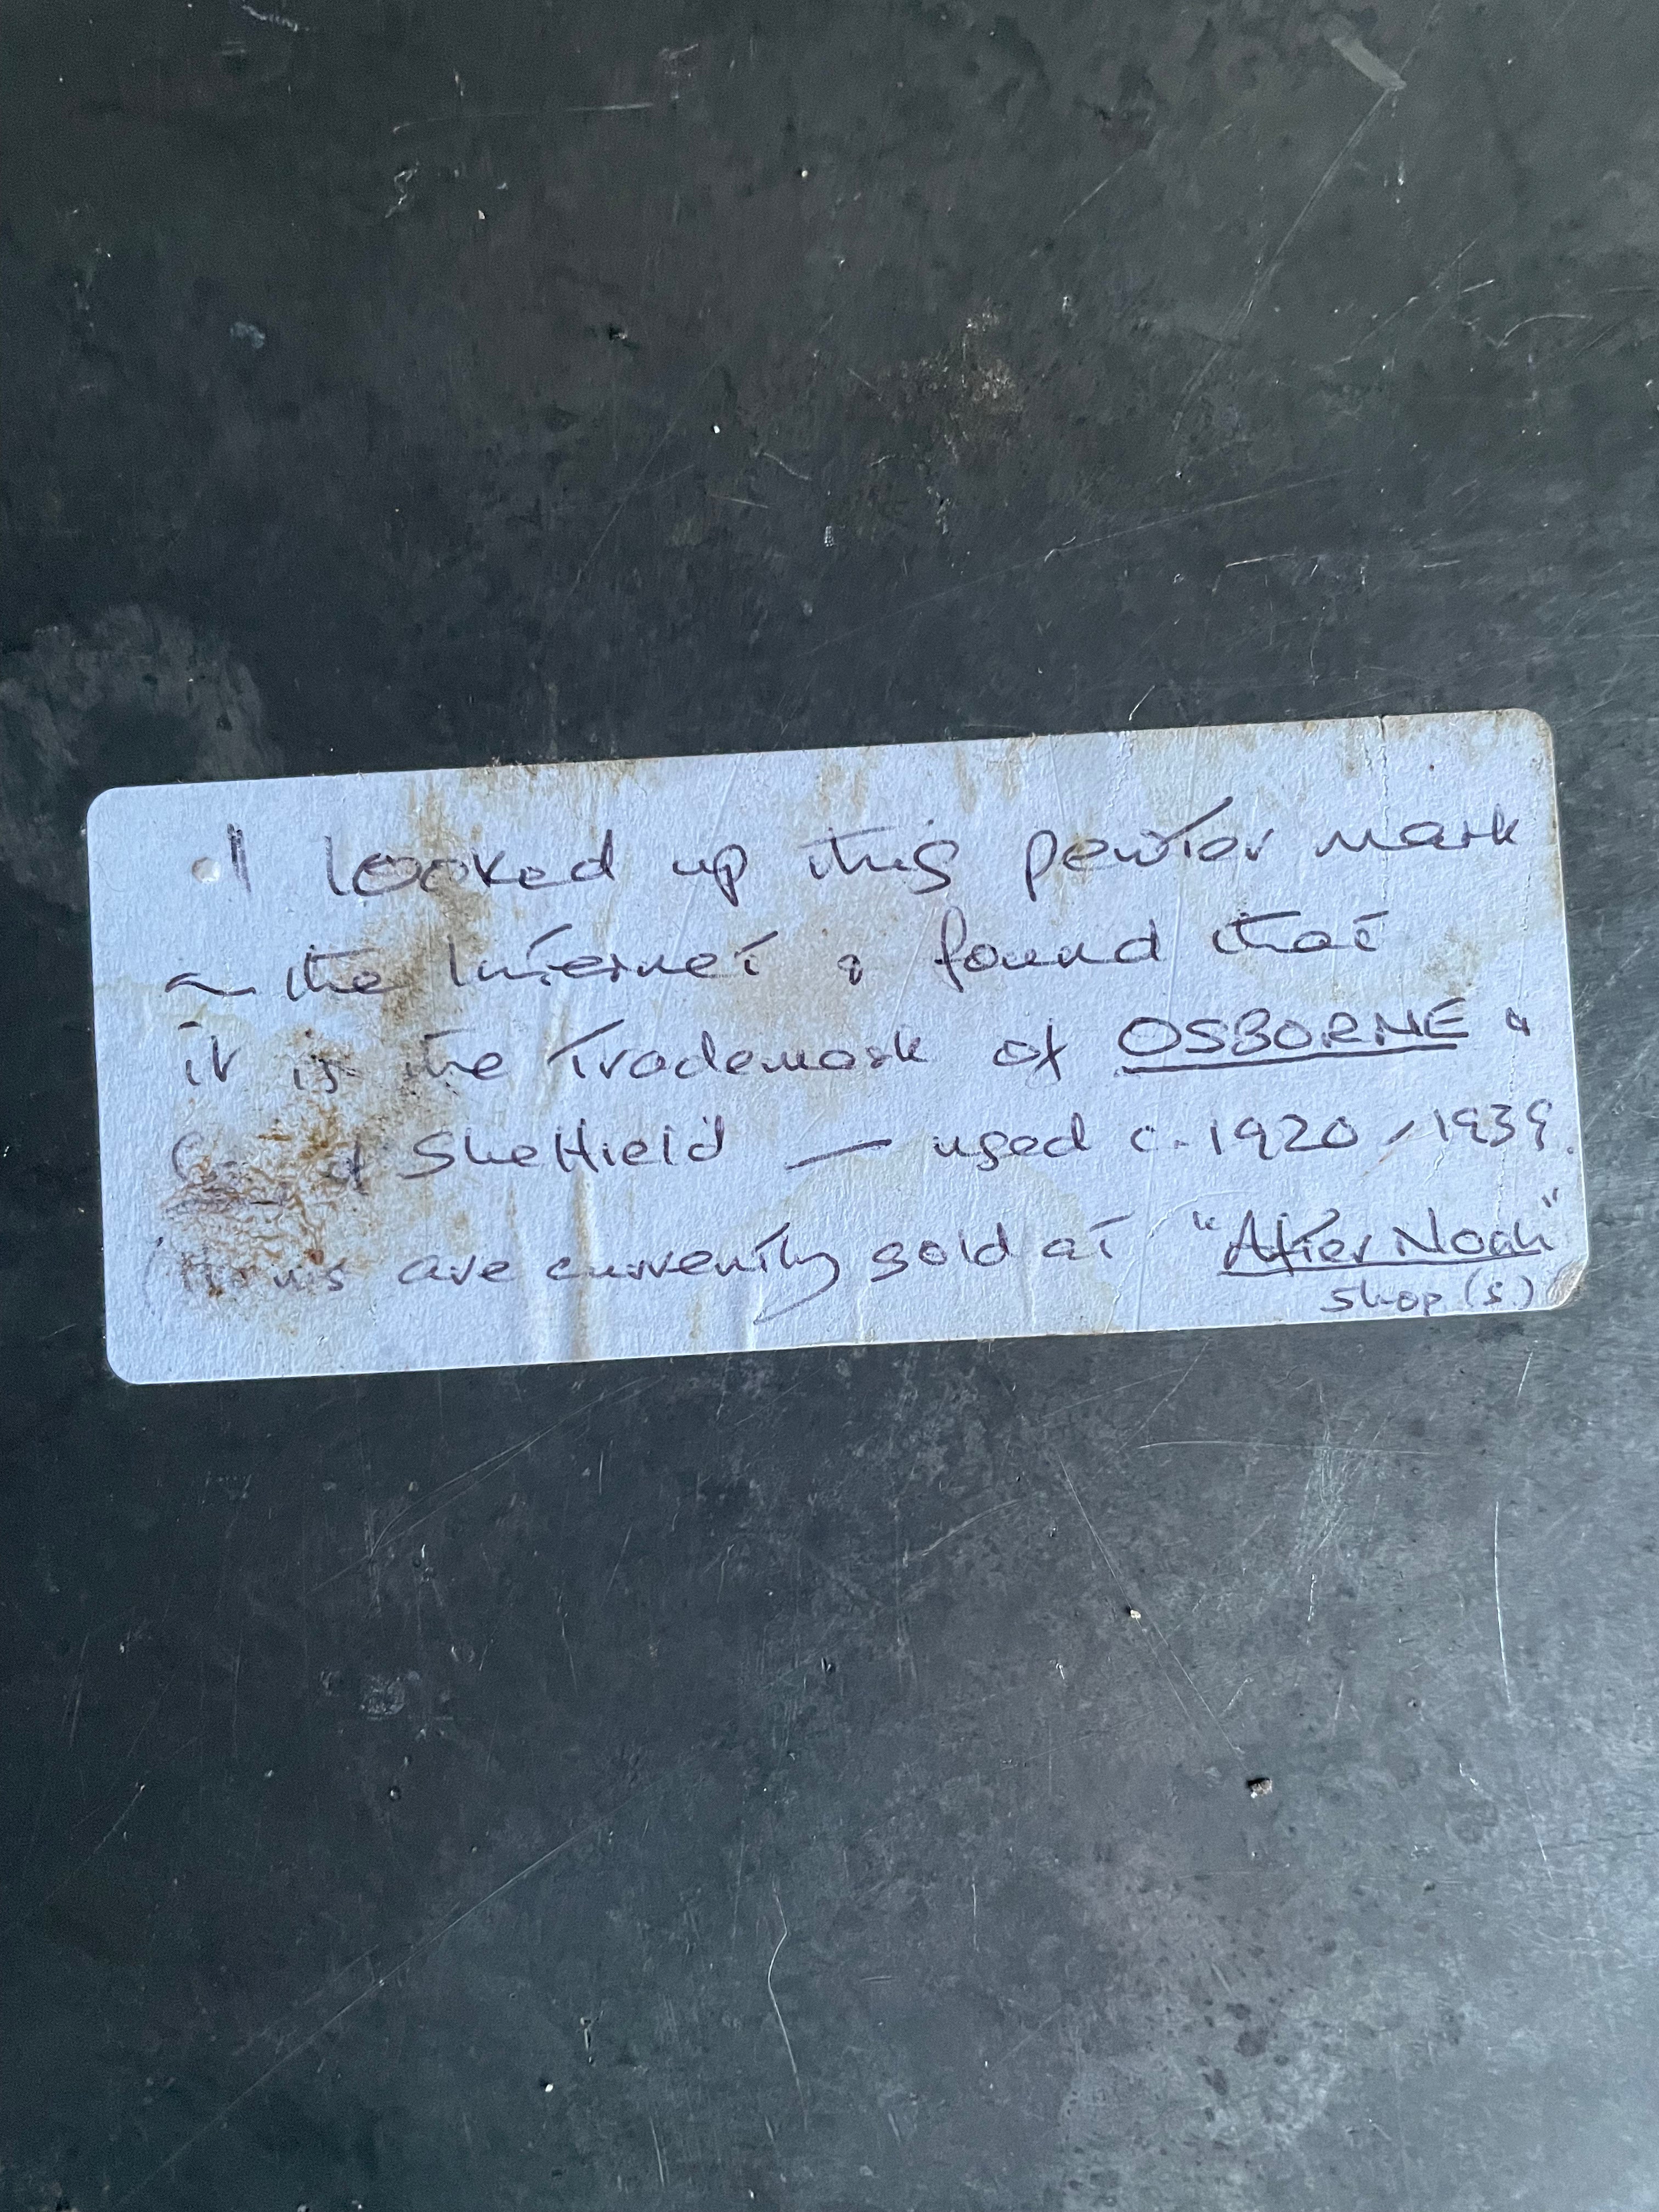 I looked up this pewter mark
on the Internet & found that
it is the Trademark of OSBORNE &
Sheffield — used c. 1920/1939.
are currently sold at "After Noah"
shop (s.)